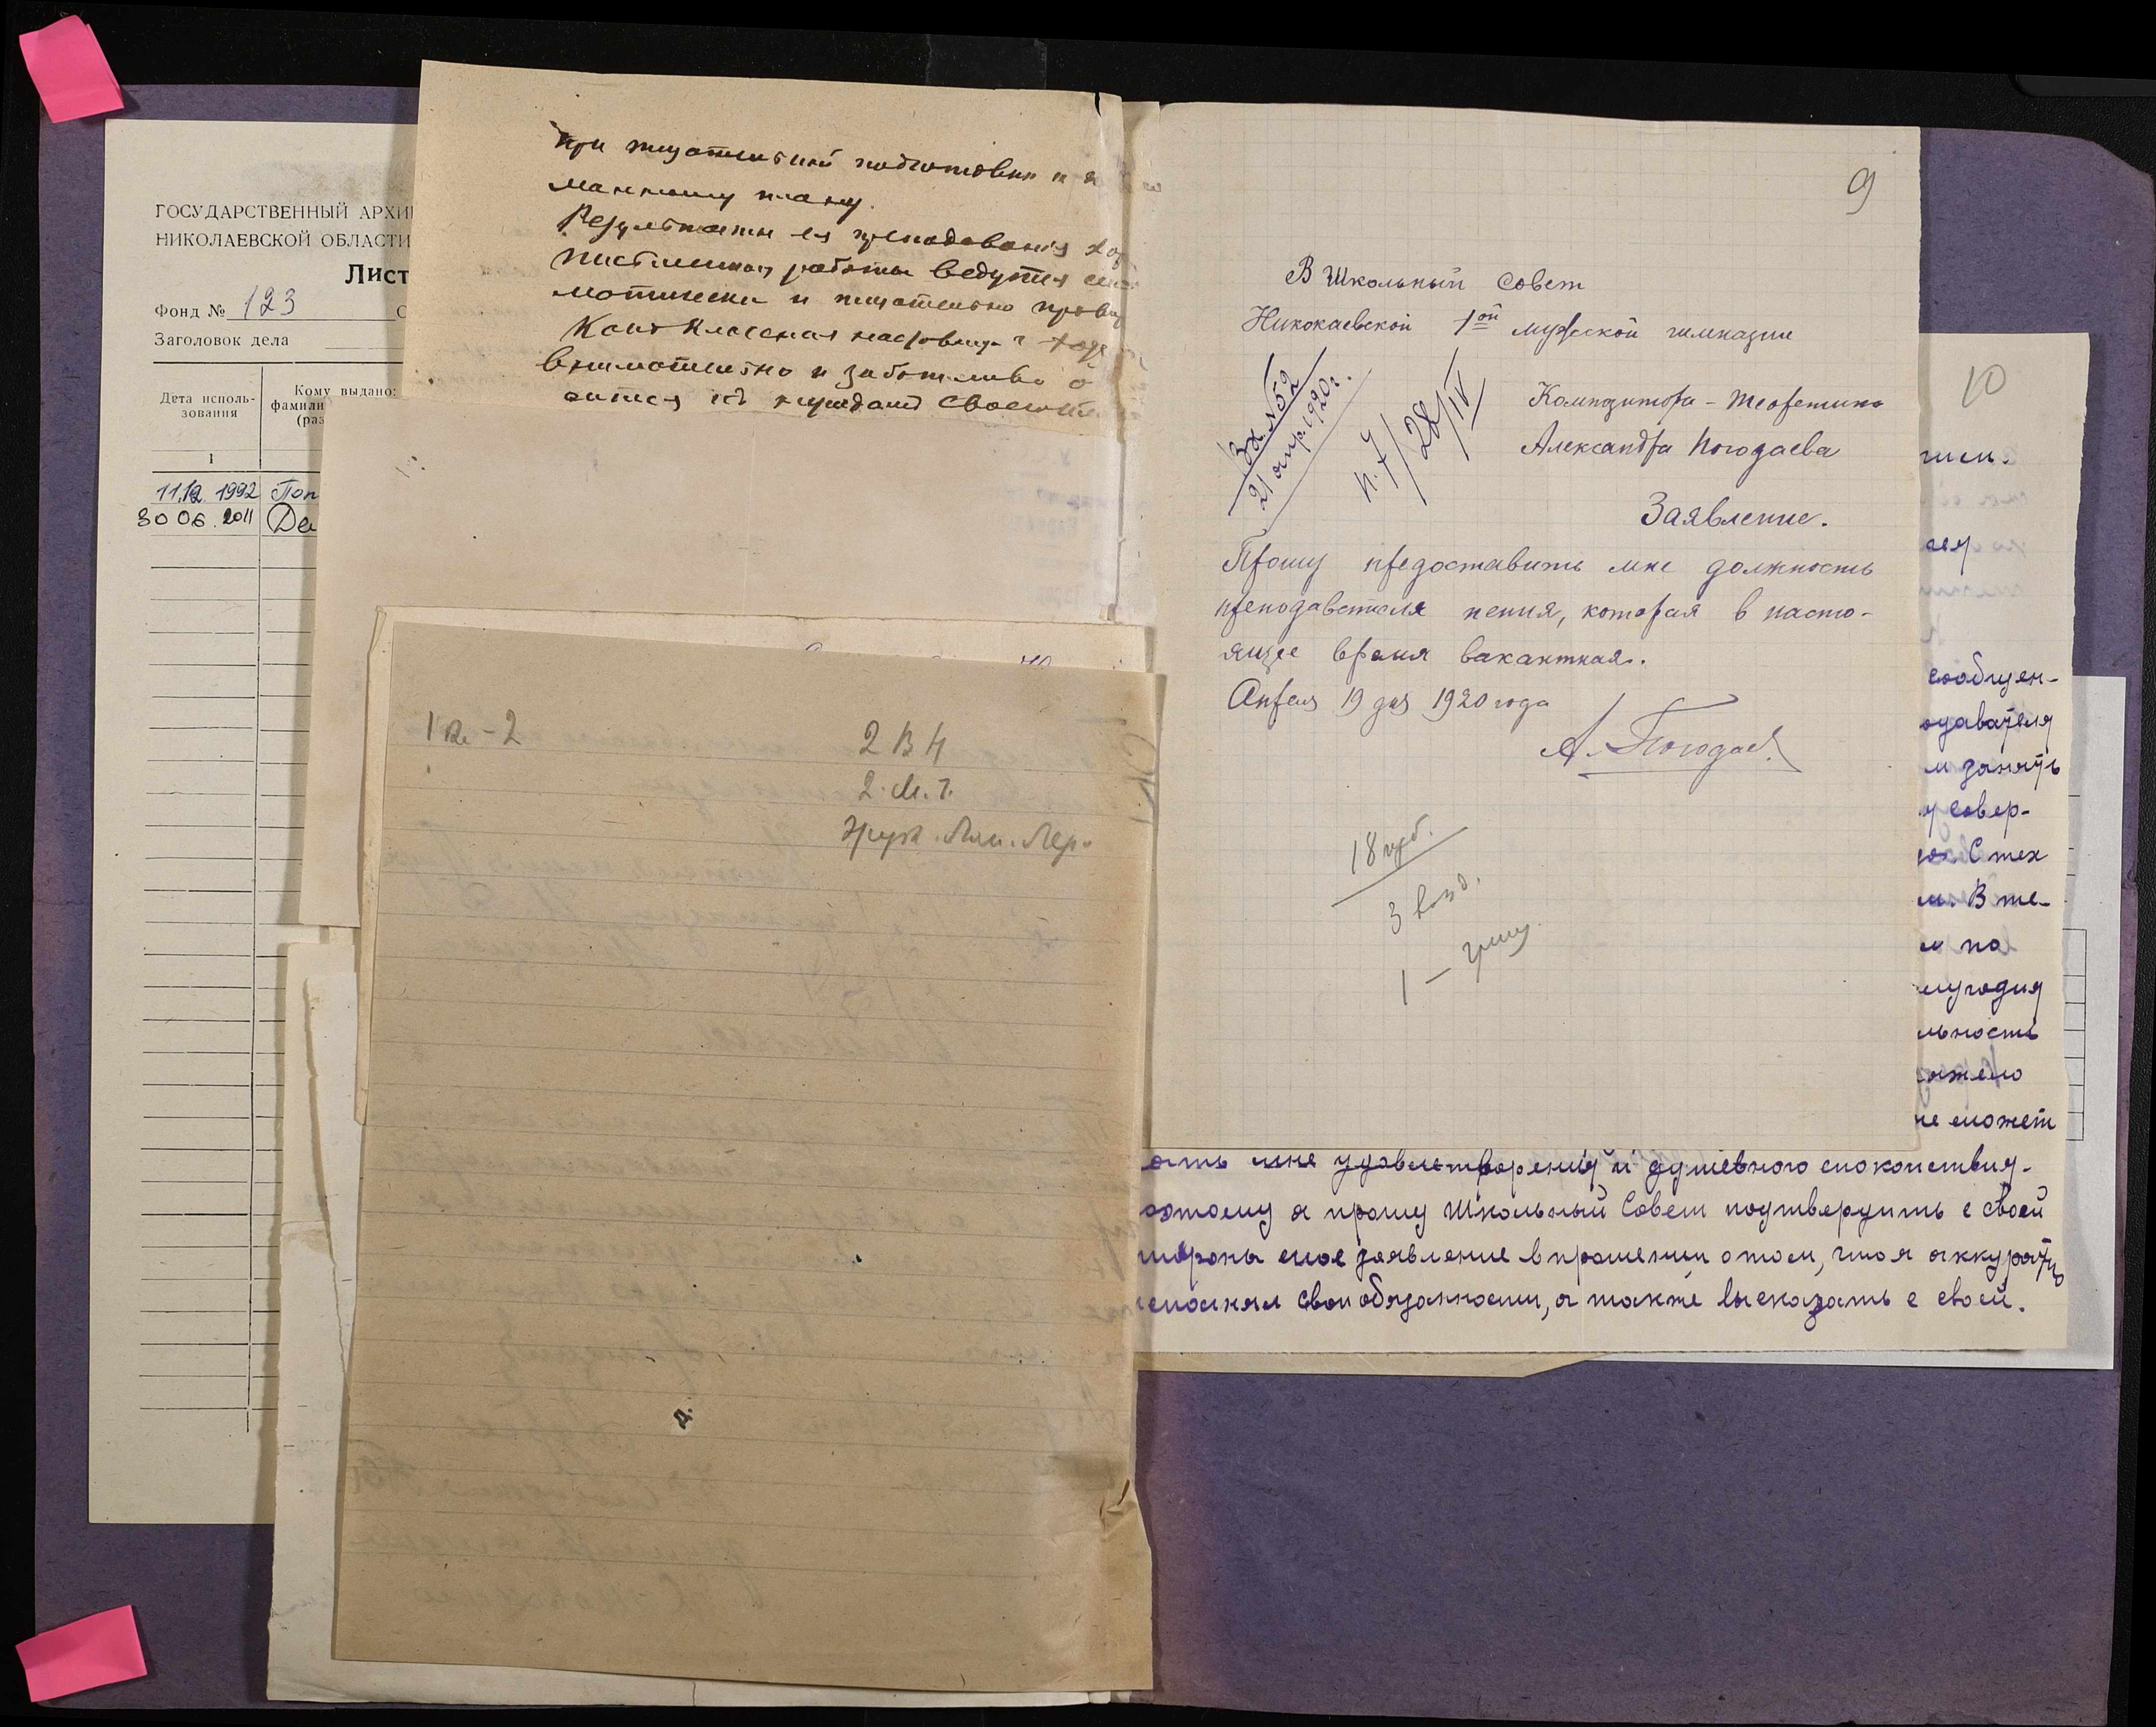 ГОСУДАРСТВЕННЫЙ АРХИ
НИКОЛАЕВСКОЙ ОБЛАСТИ
Лист
Фонд № 123
Заголовок дела
Дата исполь-
зования
Кому выдано:
фамили
(раз
1
11.12. 1992 Поп
30 06. 2011 Де
При тщательной подготовки и
Результаты ея преподавания хор
письменныя работы ведутся сис
матически и тщательно провер
Как классная
внимательно и заботливо о
сится къ нуждамъ своего
2 В Ч
2. М. 7.
9
В Школьный Совет
Николаевской 1ой мужской гимназии
Вх № 52
21 апр. 1920 г.
28/IV
Композитора - Теоретика
Александра Погодаева
Заявление.
Прошу предоставить мне должность
преподавателя пения, которая в насто-
ящее время вакантная.
Апреля 19 дня 1920 года
А. Погодаев.
18
3
1 –
10
сообщен-
одавателя
м занять
у совер-
С тех
м. В те-
м на
лугодия
льность
яжело
не может
ать мне удовлетворения и душевного спокойствия.
оэтому я прошу Школьный Совет подтвердить с своей
тороны мое заявление в прошении о том, что я аккуратно
исполнял свои обязанности, а также высказать с своей.